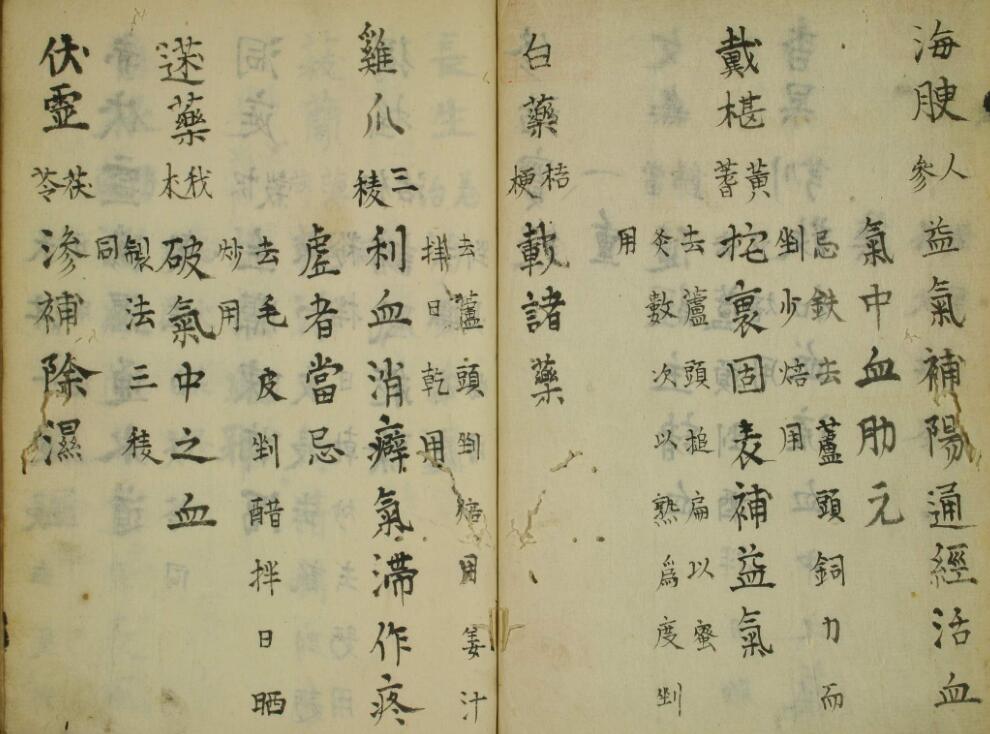 海腴 人參 益氣補陽通經活血
氣中血肋元
忌鉄去蘆頭銅刀而
剉少焙用
戴椹 黃蓍 拕裏固表補益氣
去蘆頭搥扁以蜜
炙數次以熟爲度剉
用
白藥 桔梗 載諸藥
去蘆頭剉焙用姜汁
拌日乾用
雞爪 三稜 利血消癖氣滯作疼
虛者當忌
去毛皮剉醋拌日晒
炒用
蒁藥 我木 破氣中之血
製法三稜
同
伏靈 茯苓 滲補除濕